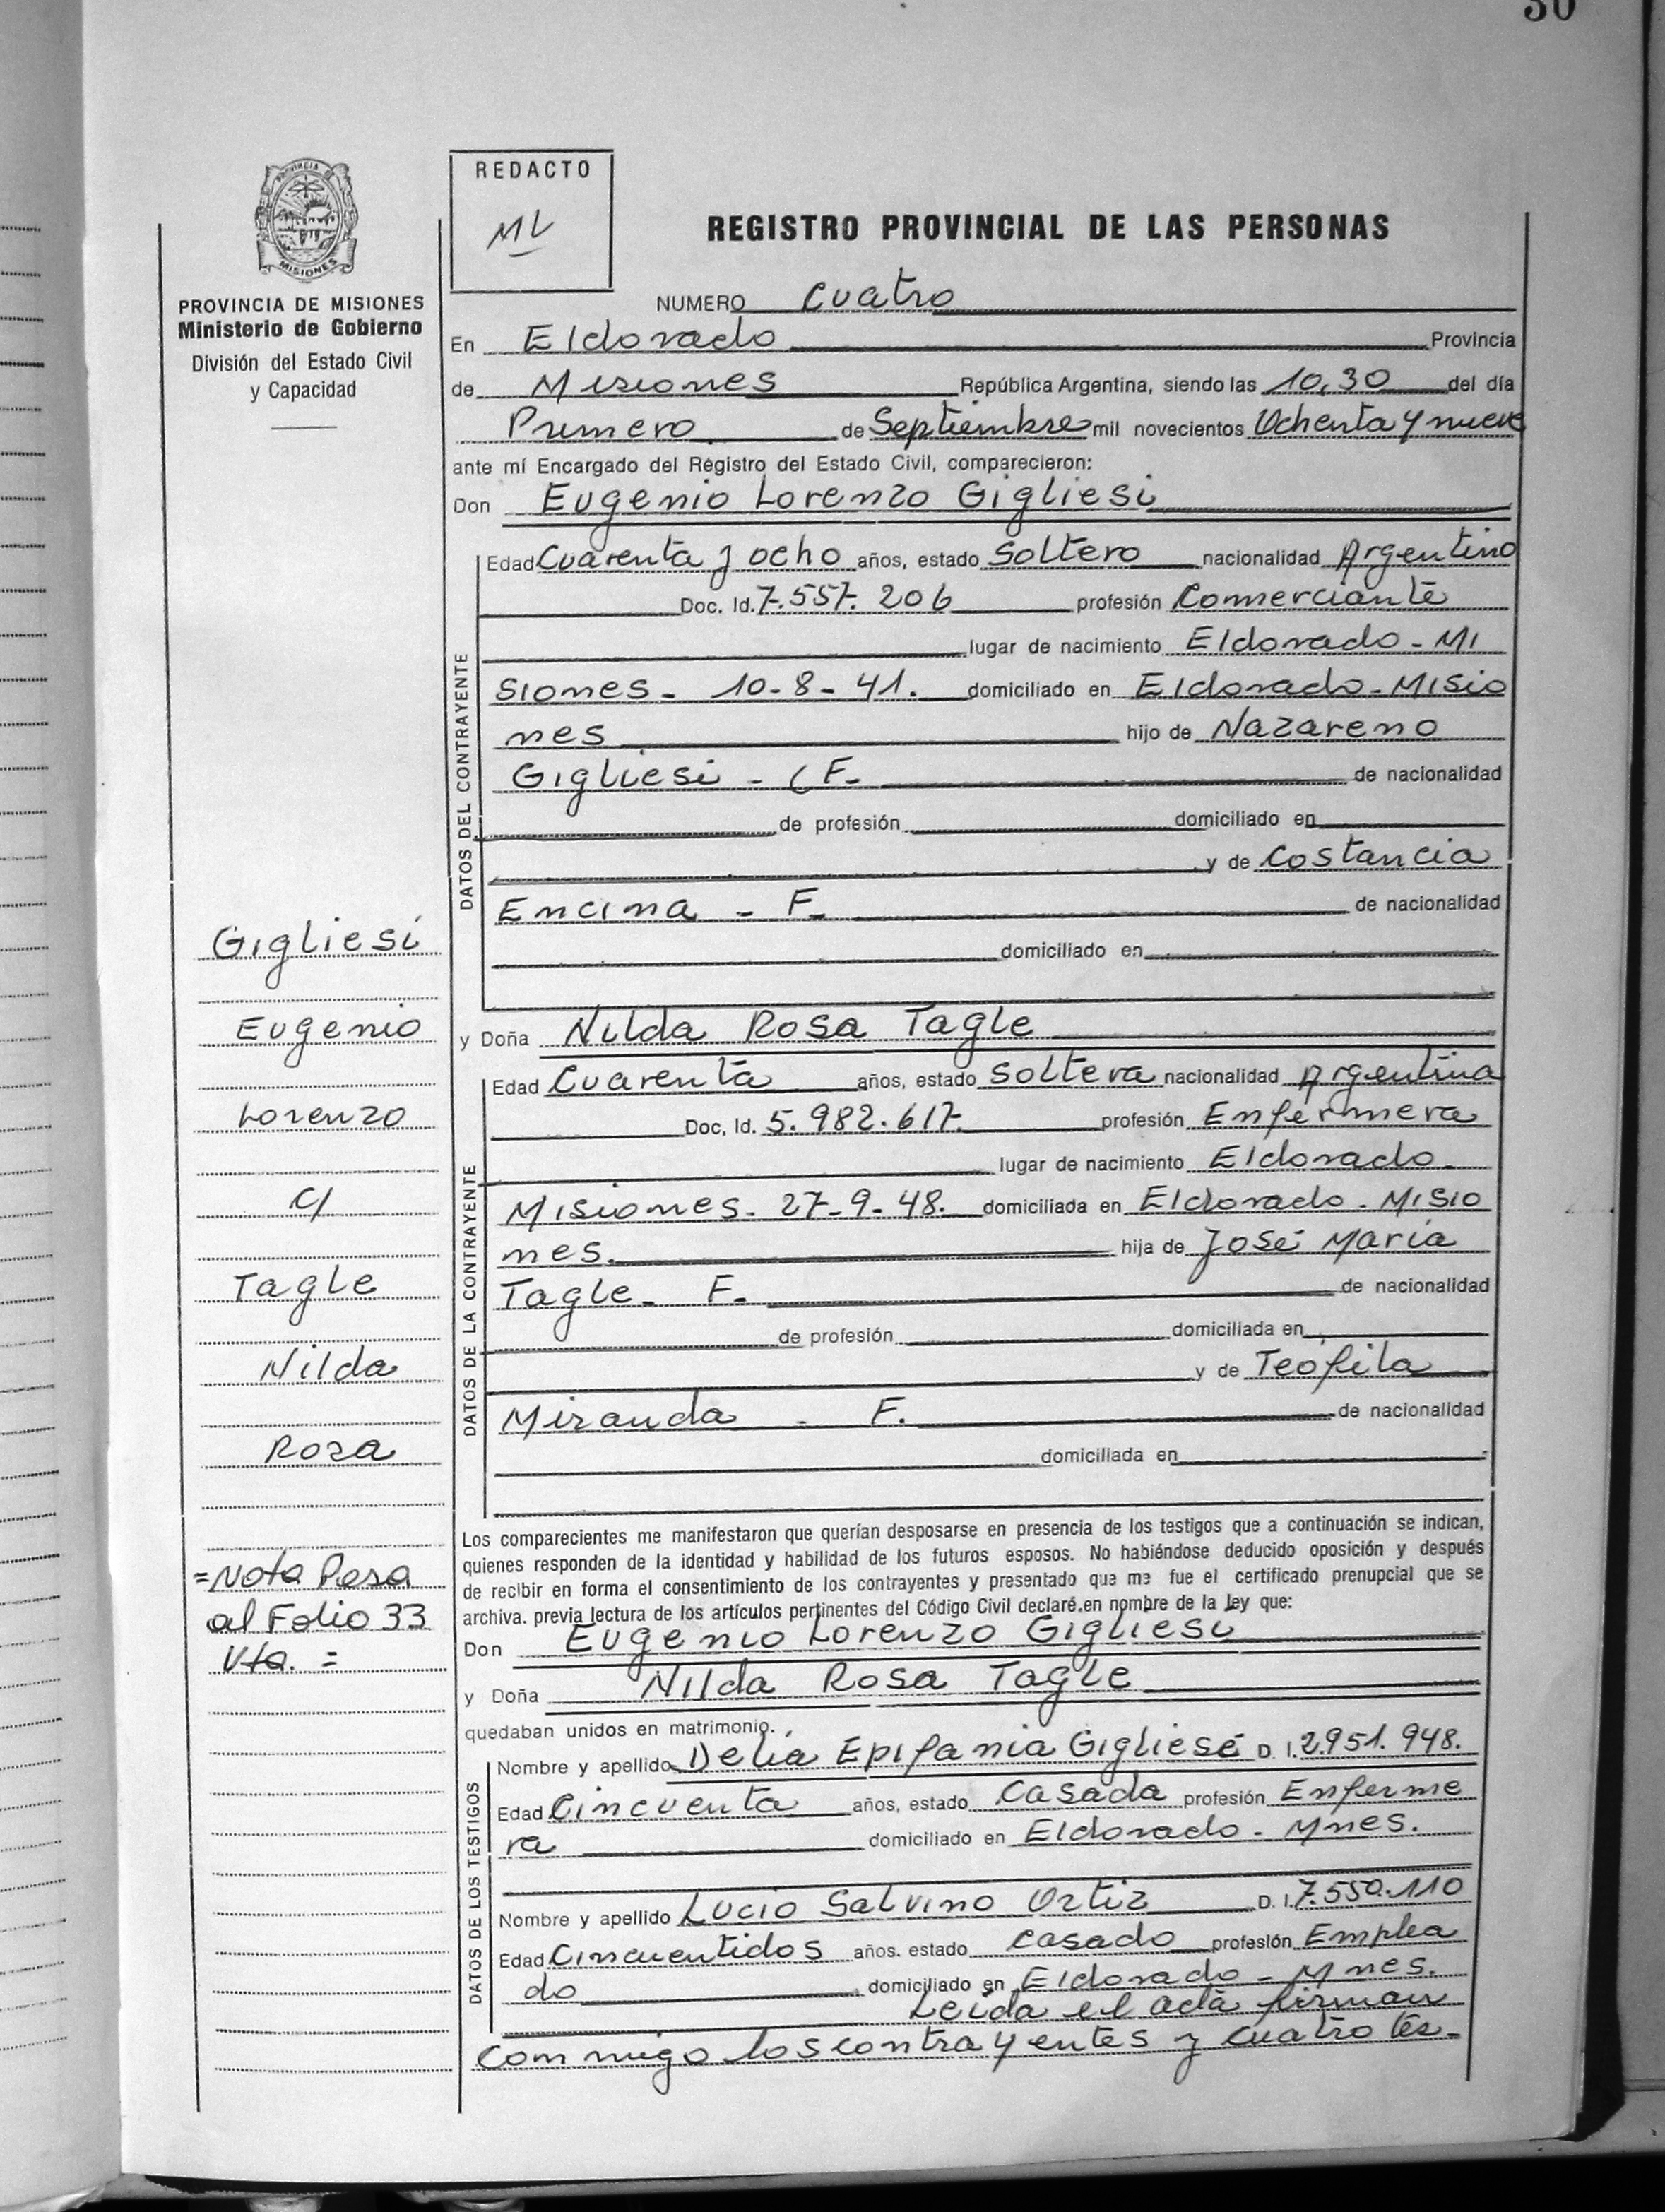 30
REDACTO
ML
PROVINCIA DE
MISIONES
PROVINCIA DE MISIONES
Ministerio de Gobierno
División del Estado Civil
y Capacidad
REGISTRO PROVINCIAL DE LAS PERSONAS
NUMERO Cuatro
En Eldorado Provincia
de Misiones República Argentina, siendo las 10,30 del día
Primero de Septiembre mil novecientos Ochenta y nueve
ante mí Encargado del Registro del Estado Civil, comparecieron:
Don Eugenio Lorenzo Gigliesi
DATOS DEL CONTRAYENTE
Edad Cuarenta y ocho años, estado Soltero nacionalidad Argentino
Doc. Id. 7.557.206 profesión Comerciante
lugar de nacimiento Eldorado - Mi
siones - 10-8-41. domiciliado en Eldorado - Misio
nes hijo de Nazareno
Gigliesi - (F. de nacionalidad
de profesión domiciliado en
y de Costancia
Encina - F. de nacionalidad
domiciliado en
y Doña Nilda Rosa Tagle
DATOS DE LA CONTRAYENTE
Edad Cuarenta años, estado Soltera nacionalidad Argentina
Doc, Id. 5.982.617. profesión Enfermera
lugar de nacimiento Eldorado.
Misiones. 27-9-48. domiciliada en Eldorado - Misio
nes. hija de José María
Tagle - F. de nacionalidad
de profesión domiciliada en
y de Teófila
Miranda - F. de nacionalidad
domiciliada en
Los comparecientes me manifestaron que querían desposarse en presencia de los testigos que a continuación se indican,
quienes responden de la identidad y habilidad de los futuros esposos. No habiéndose deducido oposición y después
de recibir en forma el consentimiento de los contrayentes y presentado que me fue el certificado prenupcial que se
archiva. previa lectura de los artículos pertinentes del Código Civil declaré.en nombre de la ley que:
Don Eugenio Lorenzo Gigliesi
y Doña Nilda Rosa Tagle
quedaban unidos en matrimonio.
DATOS DE LOS TESTIGOS
Nombre y apellido Delia Epifania Gigliese D. I. 2.951.948.
Edad Cincuenta años, estado Casada profesión Enferme
ra domiciliado en Eldorado - Mnes.
Nombre y apellido Lucio Salvino Ortiz D. I. 7.550.110
Edad Cincuentidos años. estado Casado profesión Emplea
do domiciliado en Eldorado - Mnes.
Leida el acta firman
conmigo los contrayentes y cuatro tes-
Gigliesi
Eugenio
Lorenzo
c/
Tagle
Nilda
Rosa
=Nota Pasa
al Folio 33
Vta. =